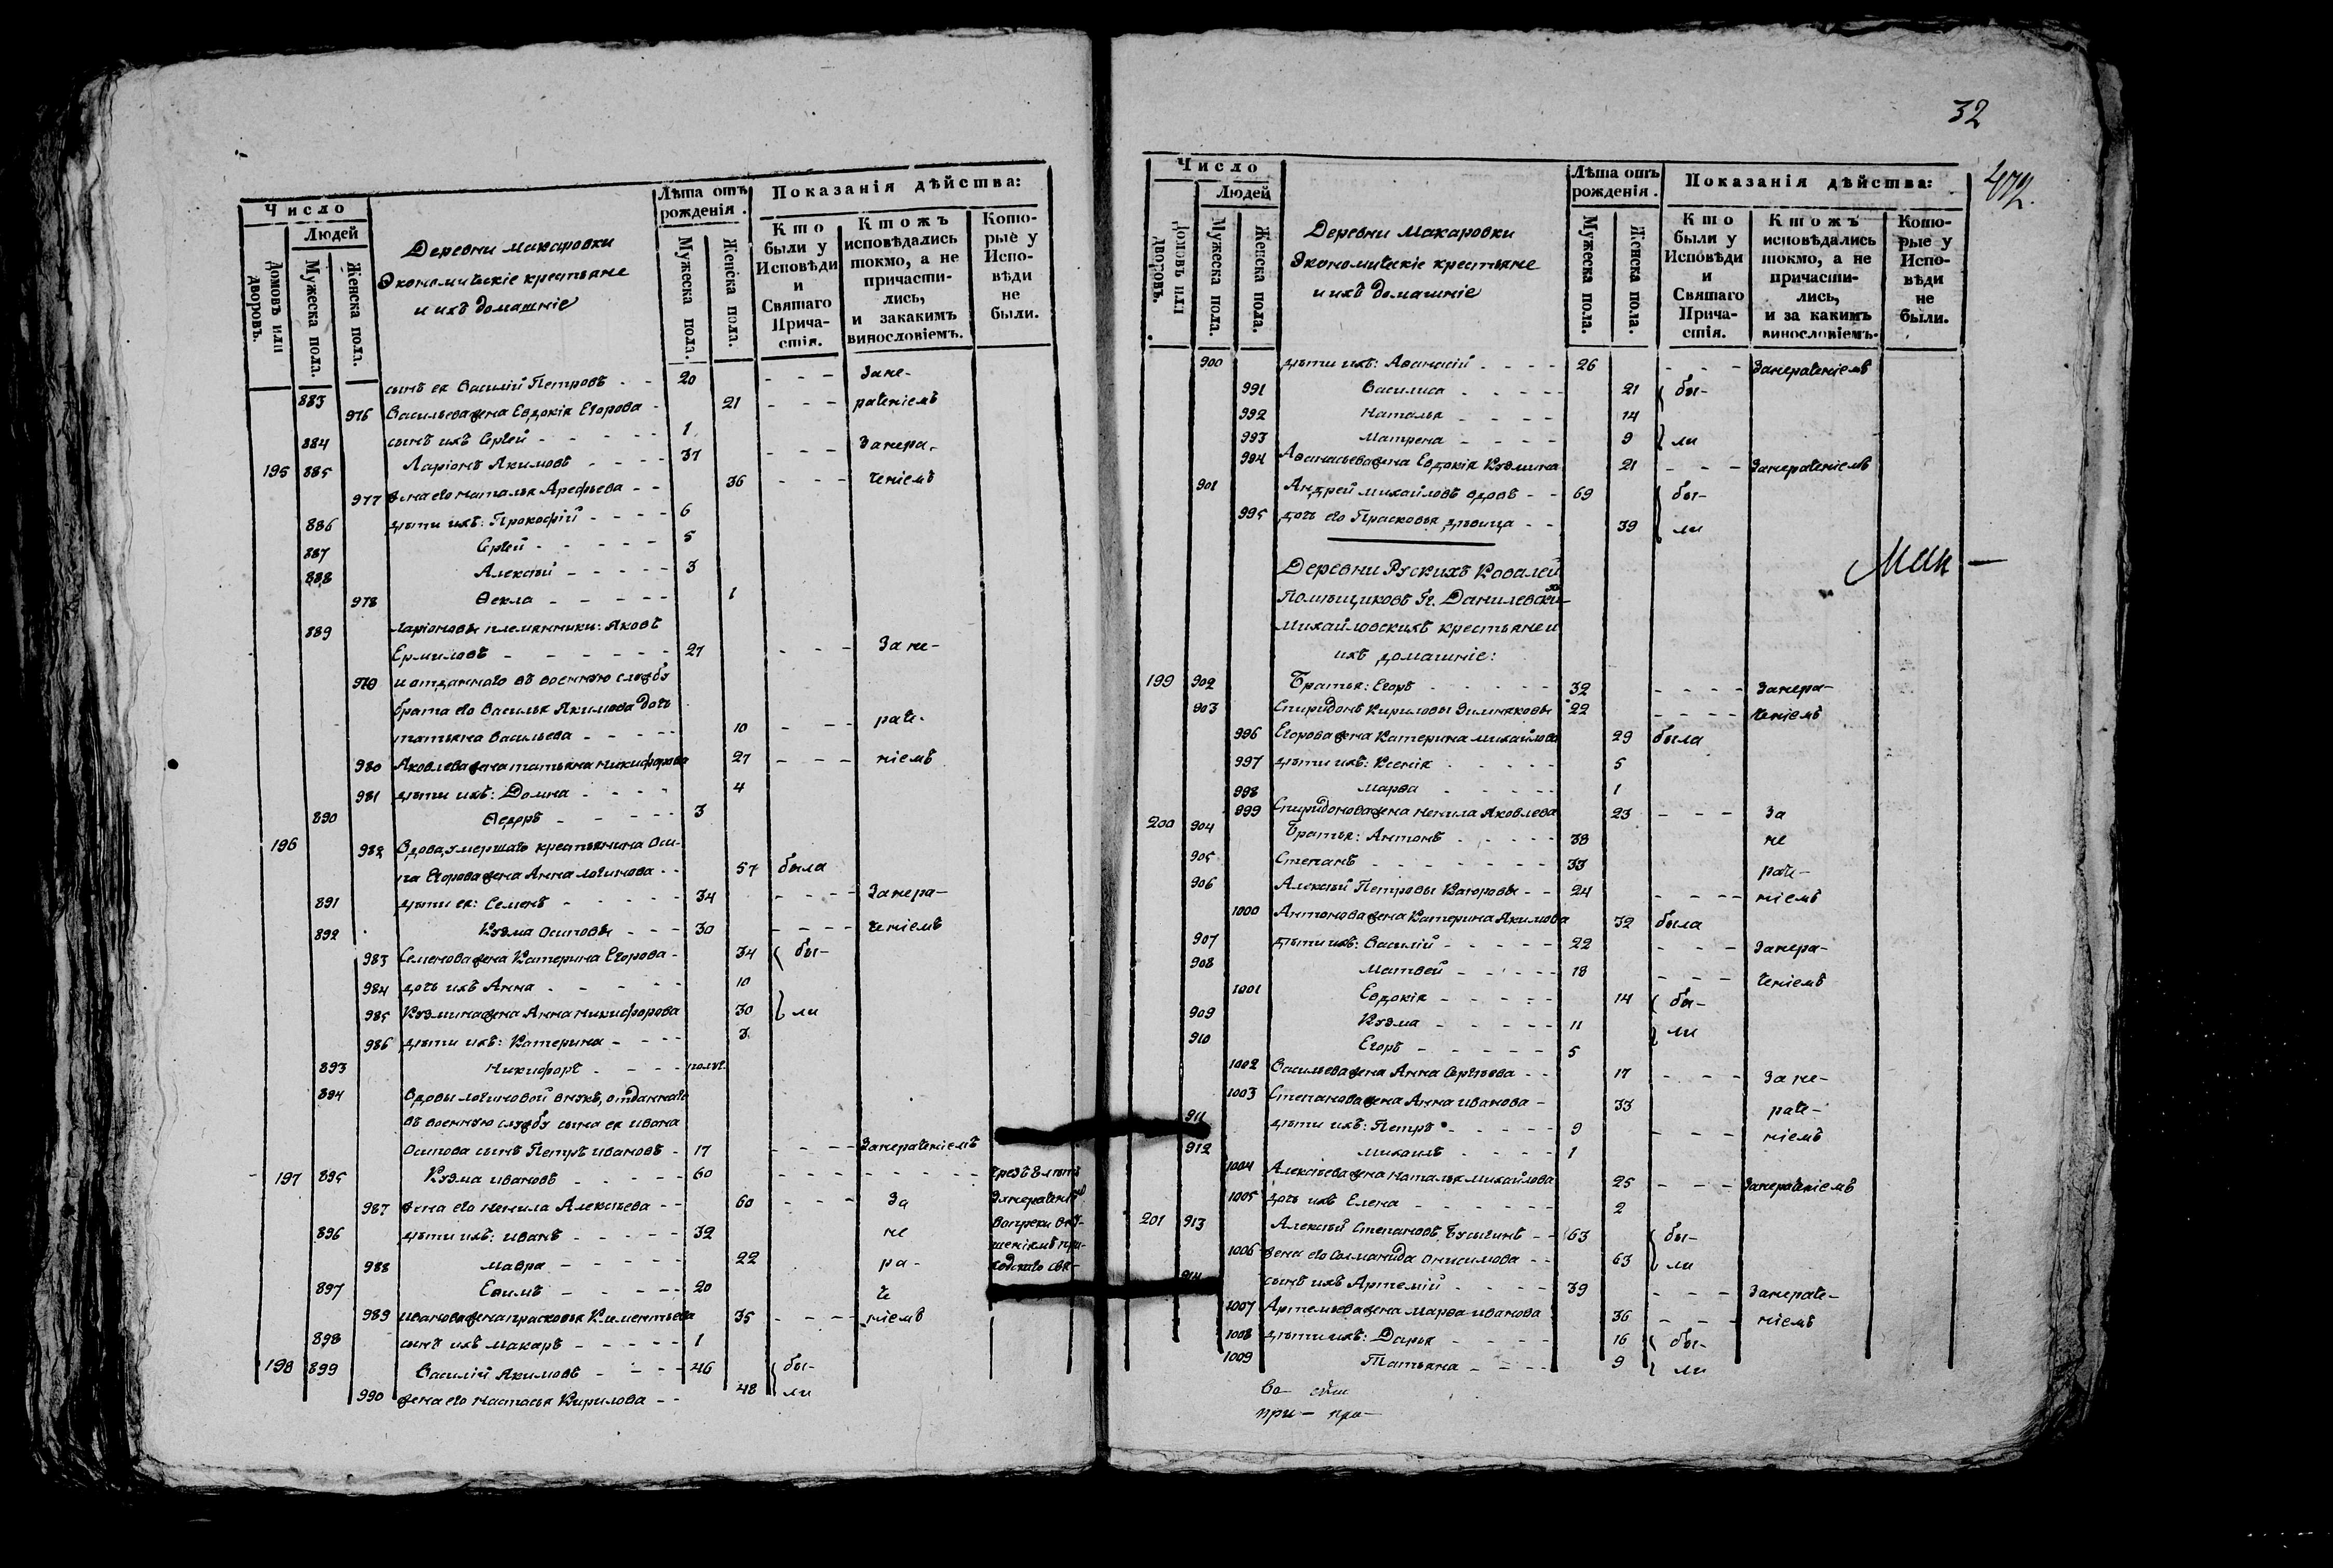 Число
Людей
Домовъ или дворовъ.
Мужеска пола.
Женска пола.
Деревни Макаровки
Экономическіе крестьяне
и ихъ домашніе
Лѣта отъ рожденія.
Мужеска пола.
Женска пола.
Показанія дѣйства:
Кто были у Исповѣди и Святаго Причастія.
Ктожъ исповѣдались токмо, а не причастились, и закакимъ винословіемъ.
Которые у Исповѣди не были.
883 сынъ ея Василій Петровъ - - 20 - - - Зане-
976 Васильева жена Евдокія Егорова - 21 - - - раченіемъ
884 сынъ ихъ Сергей - - - - - 1
195 885 Ларіонъ Акимовъ - - - - 37 - - - Занера-
977 жена его Наталья Арефьева - - 36 - - - ченіемъ
886 дѣти ихъ: Прокофій - - - - 6
887 Сергей - - - - - 5
888 Алексѣй - - - - - 3
978 Ѳекла - - - - - 1
889 Ларіоновы племянники: Яковъ
Ермиловъ - - - - - - 27 - - - Зане-
979 и отданнаго въ военную службу
брата его Василья Акимова дочь
Татьяна Васильева - - - - - 10 - - - раче-
980 Яковлева жена Татьяна Никифорова 27 - - - ніемъ
981 дѣти ихъ: Домна - - - - 4
890 Ѳедоръ - - - - - 3
196 982 Вдова, умершаго крестьянина Оси-
па Егорова жена Анна Логинова - - 57 была
891 дѣти ея: Семенъ - - - - - 34 - - - - Занера-
892 Кузма Осиповы - - - 30 - - - - ченіемъ
983 Семенова жена Катерина Егорова - 34 бы-
984 дочь ихъ Анна - - - - - 10
985 Кузмина жена Анна Никифорова 30 ли
986 дѣти ихъ: Катерина - - - - 3
893 Никифоръ - - - - полъг.
894 Вдовы Логиновой внукъ, отданнаго
въ военную службу сына ея Ивана
Осипова сынъ Петръ Ивановъ - 17 - - - - Занераченіемъ
197 895 Кузма Ивановъ - - - - - 60 - - - - - - - - чрезъ 8 лѣтъ
987 жена его Ненила Алексѣева - - 60 - - - За занераченіемъ
896 дѣти ихъ: Иванъ - - - - - 32 не вопреки вну-
988 Мавра - - - - - 22 ра- шеніямъ при-
897 Ефимъ - - - - - 20 че ходскаго свя-
989 Иванова жена Прасковья Климентьева 35 - - - - ніемъ
898 сынъ ихъ Макаръ - - - - - 1
198 899 Василій Акимовъ - - - - 46 бы-
990 жена его Настасья Кирилова - - 48 ли
32
472.
Число
Людей
Домовъ или дворовъ.
Мужеска пола.
Женска пола.
Деревни Макаровки
Экономическіе крестьяне
и ихъ домашніе
Лѣта отъ рожденія.
Мужеска пола.
Женска пола.
Показанія дѣйства:
Кто были у Исповѣди и Святаго Причастія.
Ктожъ исповѣдались токмо, а не причастились, и за какимъ винословіемъ.
Которые у Исповѣди не были.
900 дѣти ихъ: Аѳанасій - - - - 26 - - - Занераченіемъ
991 Василиса - - - - - 21 бы-
992 Наталья - - - - 14
993 Матрена - - - - 9 ли
994 Аѳанасьева жена Евдокія Кузмина 21 - - - Занераченіемъ
901 Андрей Михайловъ вдовъ - - 69 бы-
995 дочь его Прасковья дѣвица - - 39 ли
Деревни Рускихъ Ковалей
Помѣщиковъ Гг. Данилевски-
Михайловскихъ крестьяне и
ихъ домашніе:
199 902 Братья: Егоръ - - - - - 32 - - - - Занера-
903 Спиридонъ Кириловы Зимняковы 22 - - - - ченіемъ
996 Егорова жена Катерина Михайлова 29 была
997 дѣти ихъ: Ксенія - - - - - 5
998 Марѳа - - - - - 1
999 Спиридонова жена Ненила Яковлева 23 - - - За
200 904 Братья: Антонъ - - - - - 38 не
905 Степанъ - - - - - - - 33 раче-
906 Алексѣй Петровы - - 24 - - - - ніемъ
1000 Антонова жена Катерина Акимова 32 была
907 дѣти ихъ: Василій - - - - - 22 - - - Занера-
908 Матвей - - - - - 18 - - - ченіемъ
1001 Евдокія - - - - - 14 бы-
909 Кузма - - - - - 11 ли
910 Егоръ - - - - - 5
1002 Васильева жена Анна Сергѣева - - 17 - - - Зане-
1003 Степанова жена Анна Иванова - 33 раче-
911 дѣти ихъ: Петръ - - - - - 9 - - - ніемъ
912 Михаилъ - - - - 1
1004 Алексѣева жена Наталья Михайлова 25 - - - Занераченіемъ
1005 дочь ихъ Елена - - - - - - 2
201 913 Алексѣй Степановъ - - 63 бы-
1006 жена его Соломанида Онисимова - - 63 ли
914 сынъ ихъ Артемій - - - - 39 - - - Занераче-
1007 Артемьева жена Марѳа Иванова 36 - - - ніемъ
1008 дѣти ихъ: Дарья - - - - 16 бы-
1009 Татьяна - - - - 9 ли
при-